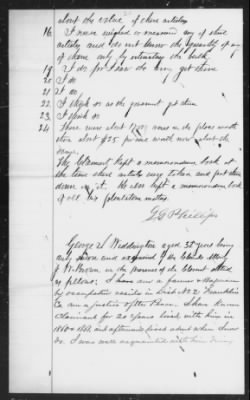 about the value of these articles
16. I never weighed or measured any of these
articles and do not know the quantity of any
of them only by estimating the bulk
19 I do for I saw the army get them
20 I do
21 I do
22 I think so as the government got them
23 I think so
24 There were about acres in the place worth
then about $25 per acre worth now about the
same.
The Claimant kept a memorandum book at
the time these articles were taken and put them
down in it. He also kept a memorandum book
of all his plantation matters.
G G Phillips
George W Weddington aged 38 years being
duly sworn and examined
of in the presence of the Claimant
as follows; I am a farmer
by occupation reside in Dist No 22 Franklin
Co am a justice of the Peace. I have known
Claimant for 20 years lived with him in
1860 & 1861 and afterwards lived about when I now
do. I was well acquainted with him during